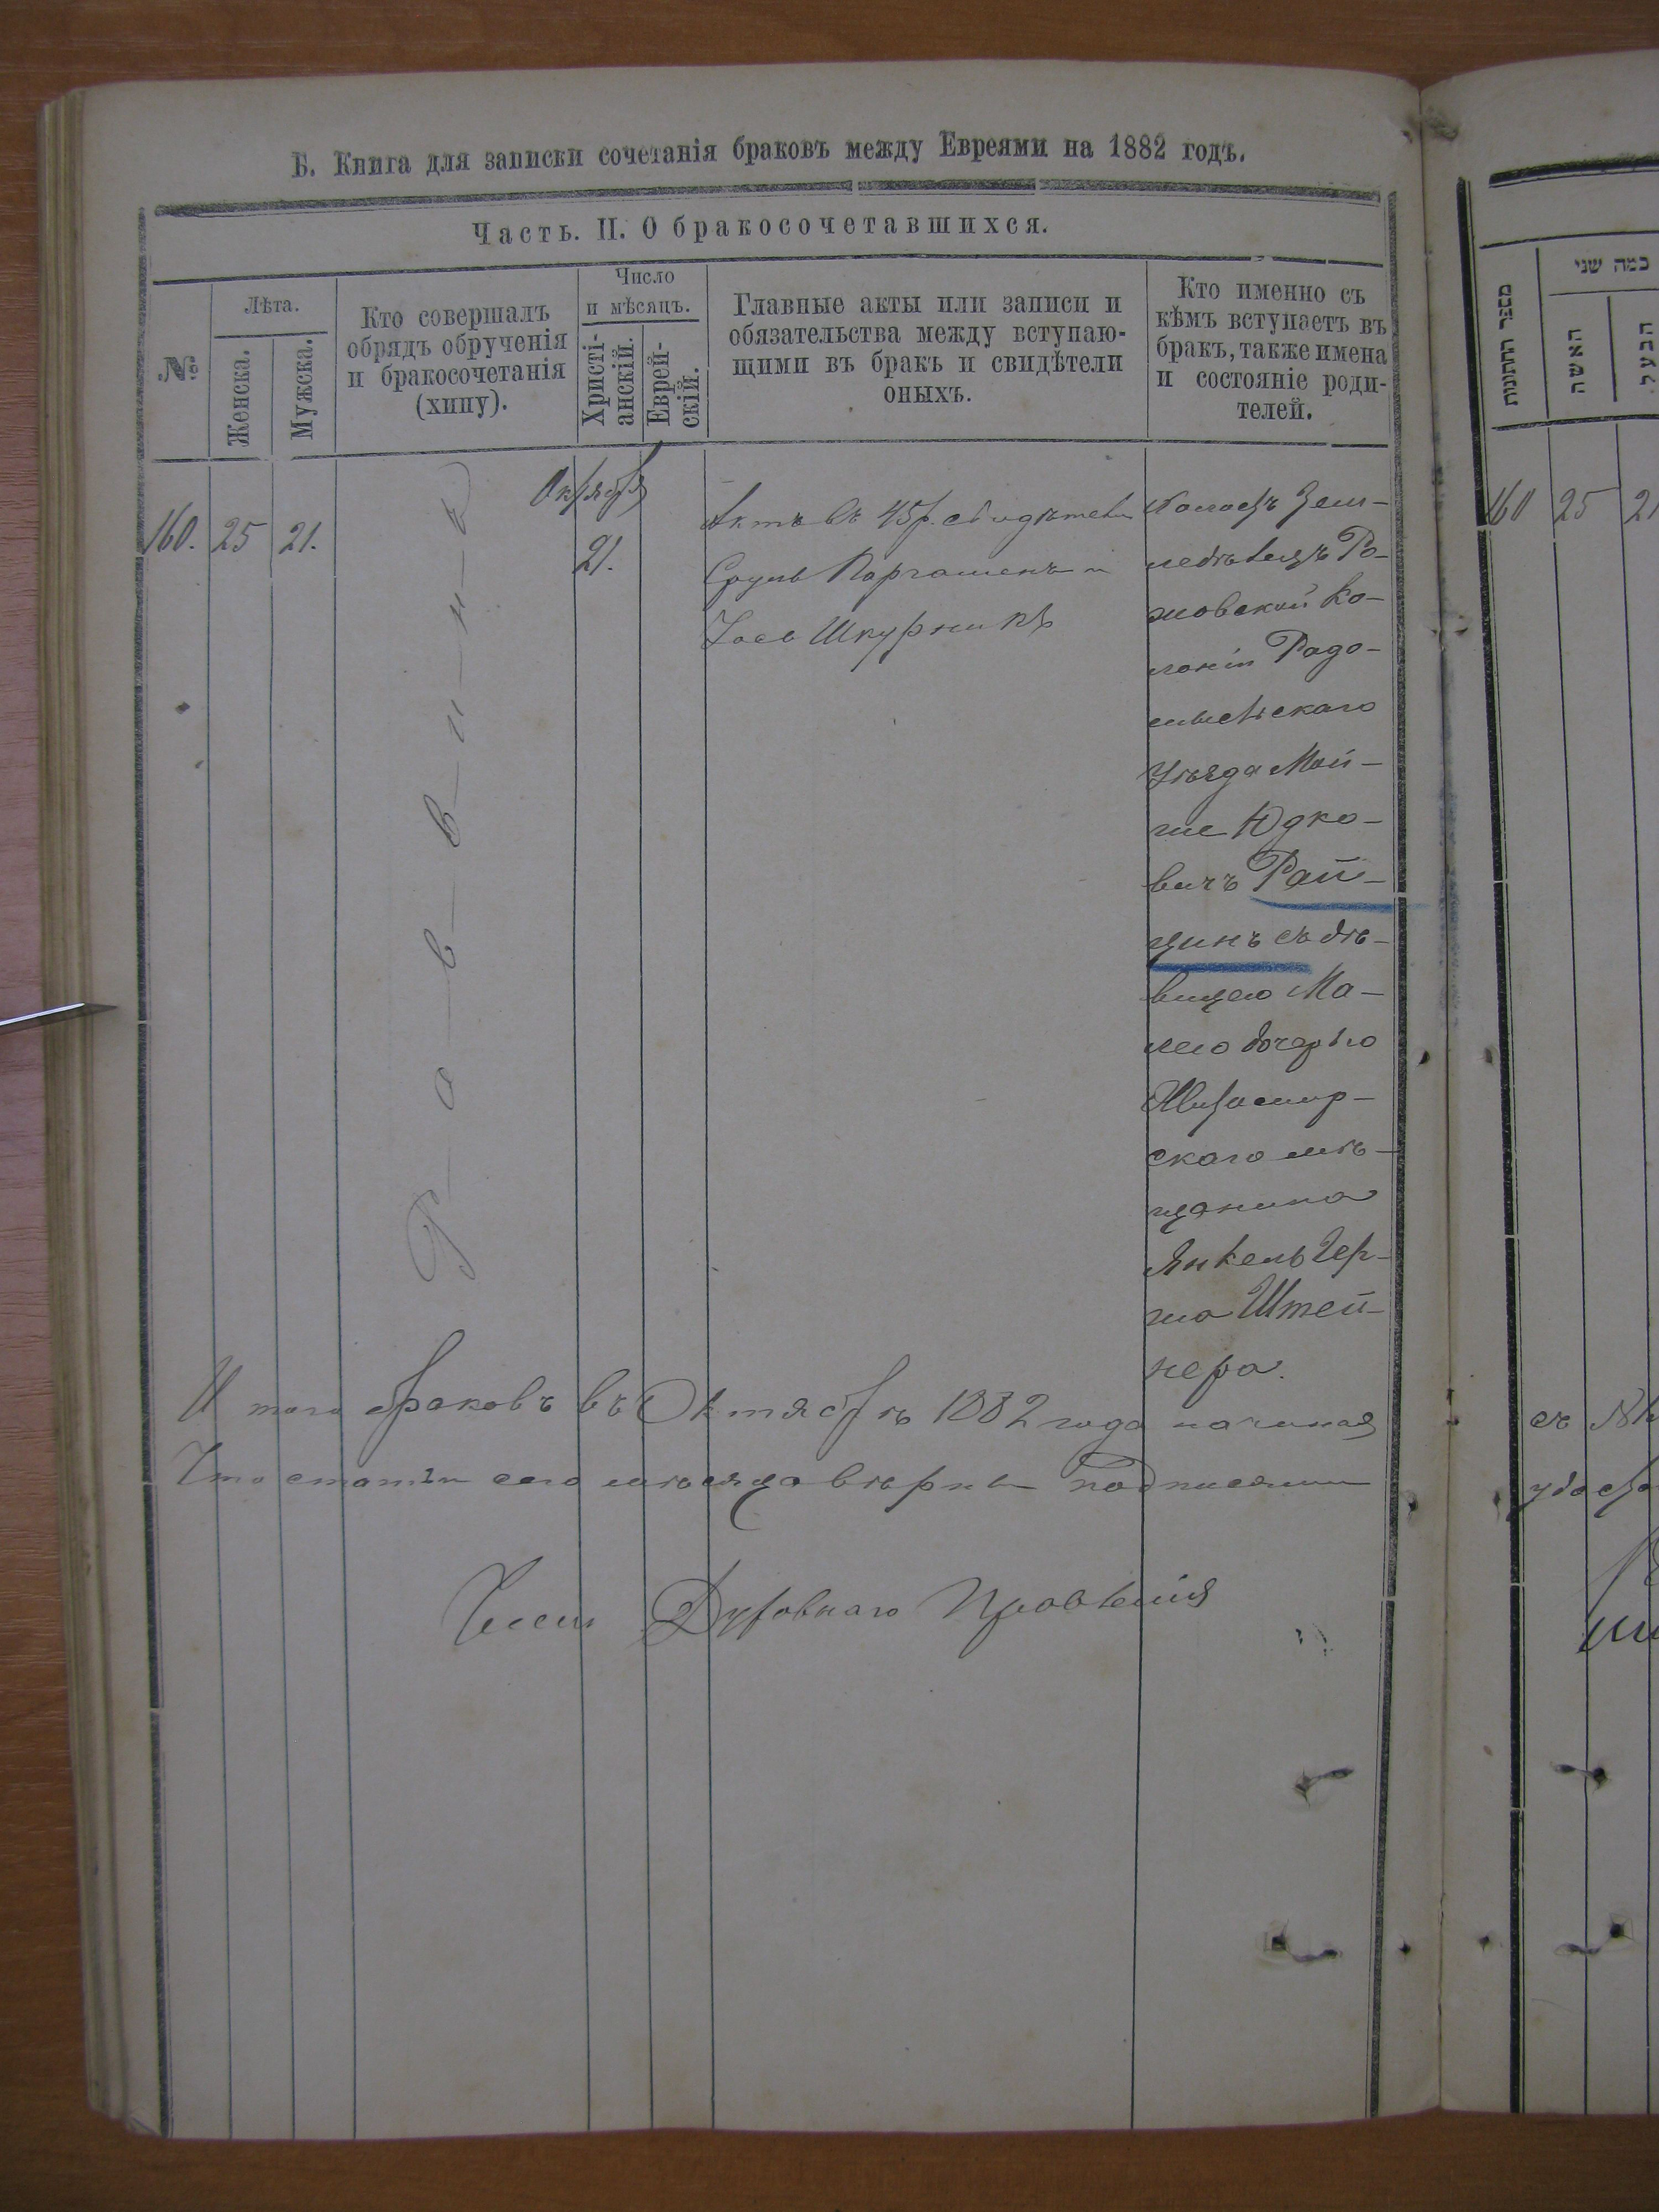 Б. Книга для записки сочетанія браковъ между Евреями на 1882 годъ.
Часть. II. О бракосочетавшихся.
№
Лѣта.
Женска.
Мужска.
Кто совершалъ
обрядъ обрученія
и бракосочетанія
(хипу).
Число
и мѣсяцъ.
Христі-
анскій.
Еврей-
скій.
Главные акты или записи и
обязательства между вступаю-
щими въ бракъ и свидѣтели
оныхъ.
Кто именно съ
кѣмъ вступаетъ въ
бракъ, также имена
и состояніе роди-
телей.
160. 25 21.
Р-а-в-в-и-н-ъ
Октября
21.
Актъ въ 45р. свидѣтели
Сруль и
Іось Шкурникъ
земле-
дѣлецъ Ро-
жовской ко-
лоніи Радо-
мысльскаго
уѣзда Мой-
ше Юдко-
вичъ Рай-
цинъ съ дѣ-
вицею Ма-
лею дочерью
Житомир-
скаго мѣ-
щанина
Янкель Гер-
ша Штей-
нера.
И того браковъ въ Октябрѣ 1882 года начиная
Что статьи сего мѣсяца вѣрны подписями
Члены Духовнаго Правленія
מספר החתונות
כמה שני
האשה
הבעל.
160 25 21
съ №